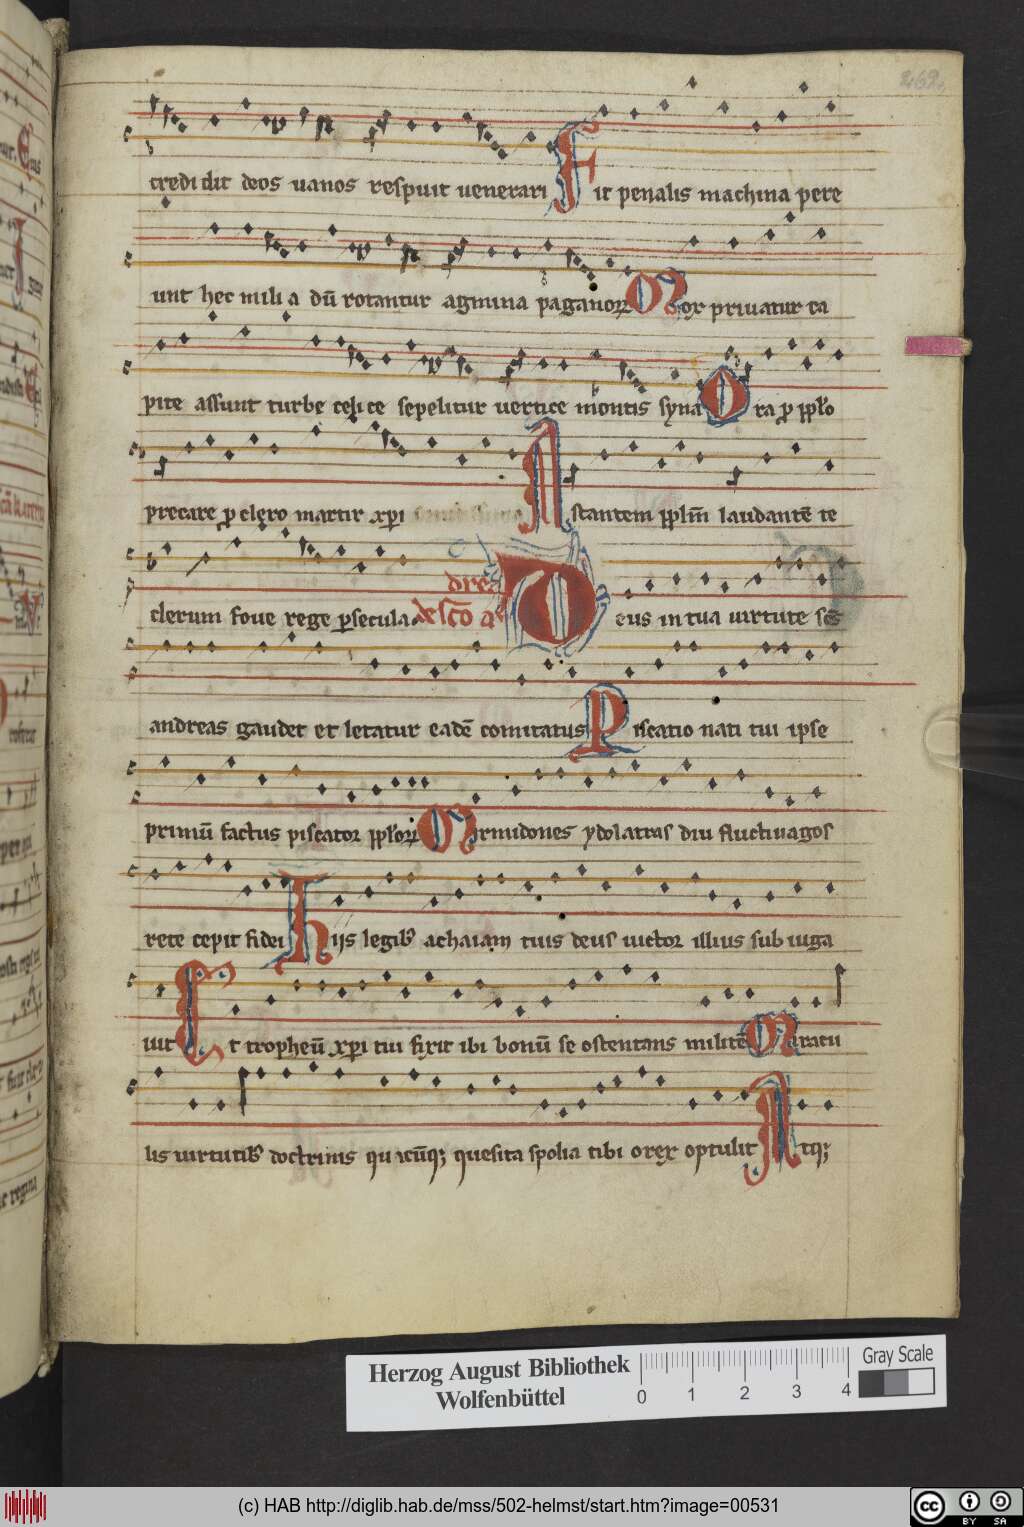 269.
credi dit deos vanos respuit venerari Fit penalis machina pere
unt hec mili a dũ rotantur agmina paganoꝝ Mox privatur ca
pite assunt turbe celi ce sepelitur vertice montis syna Ora ꝓ pp̄lo
precare ꝓ clero martir xp̄i Astantem pp̄lm̄ laudantē te
clerum fove rege ꝑ secula
dre
de sc̄o a
Deus in tua virtute sc̄s
andreas gaudet et letatur eadē comitatus Piscatio nati tui ipse
primū factus piscator pp̄loꝝ Mirmidones ydolatras diu fluctivagos
rete cepit fidei Hijs legibꝰ achaiam tuis deus victor illius sub iuga
vit Et tropheū xp̄i tui fixit ibi bonū se ostentans militē Maratu
lis virtutibꝰ doctrinis qui cūqꝫ quesita spolia tibi o rex optulit Atqꝫ
Herzog August Bibliothek
Wolfenbüttel
0 1 2 3 4
Gray Scale
(c) HAB http://diglib.hab.de/mss/502-helmst/start.htm?image=00531
cc BY SA